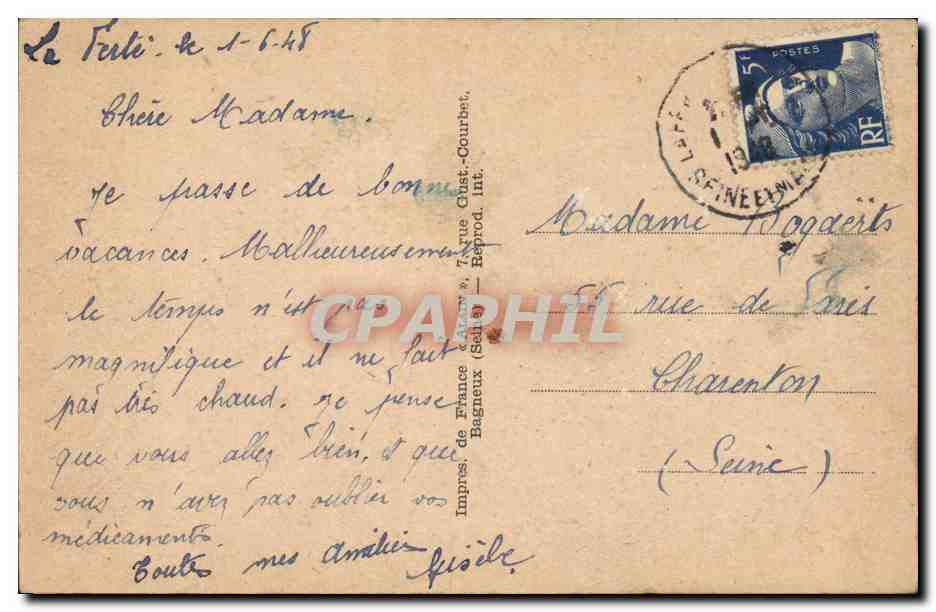 La Ferté le 1-6-48
Chère Madame.
Je passe de bonnes
vacances. Malheureusement
le temps n'est pas
magnifique et il ne fait
pas très chaud. Je pense
que vous allez bien, et que
vous n'avez pas oublier vos
médicaments.
Toutes mes amitiés
Gisèle
Impres. de France « ALAIN », 7, rue Gust.-Courbet,
Bagneux (Seine) — Reprod. int.
POSTES
5F
RF
LA FER
1
SEINE ET M
Madame Bogaërts
rue de
Charenton
(Seine)
CPARPHIL